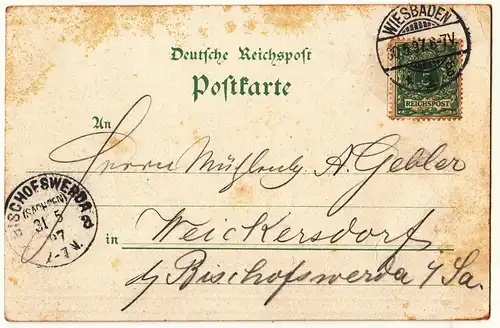 WIESBADEN
30.5.97.6-7V.
Deutsche Reichspost
Postkarte
5
REICHSPOST
An
Herrn Mühlenbes A. Gebler
BISCHOFSWERDA
(SACHSEN)
31 5
97
in Weickersdorf
b/ Bischofswerda i/Sa.